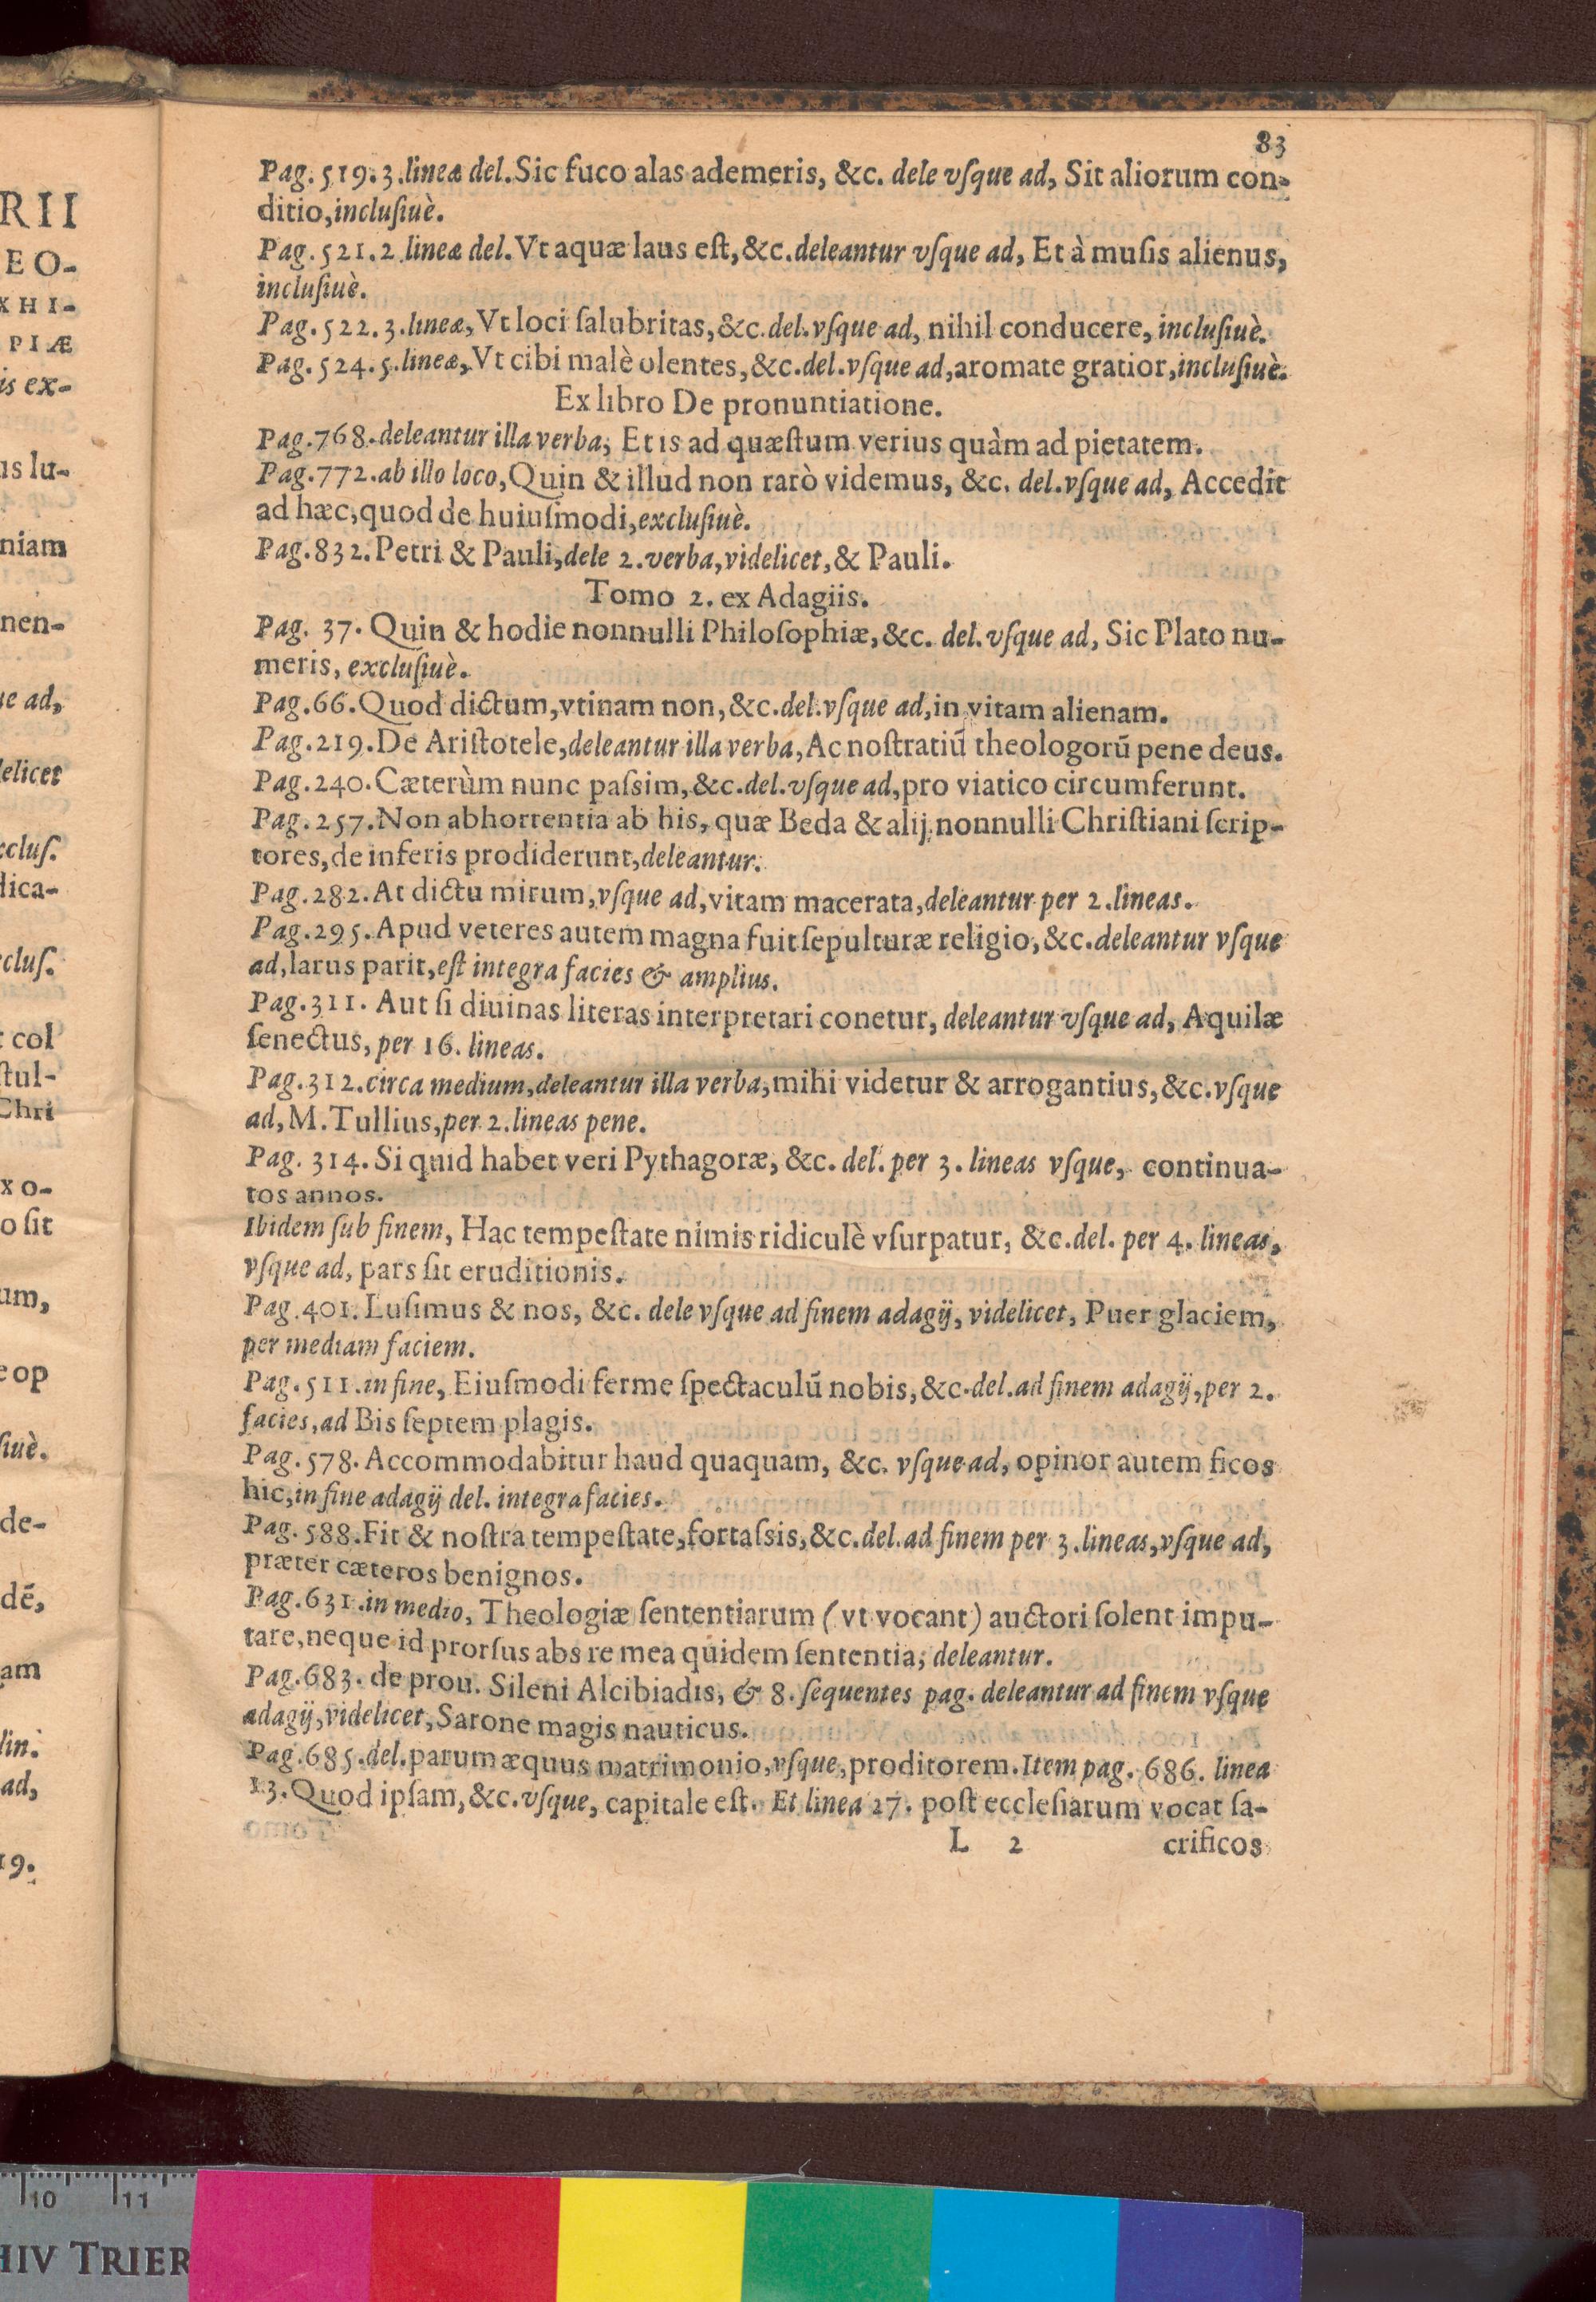 83
Pag. 519. 3. lineæ del. Sic fuco alas ademeris, &c. dele vſque ad, Sit aliorum con-
ditio, incluſiuè.
Pag. 521. 2. lineæ del. Vt aquæ laus eſt, &c. deleantur vſque ad, Et à muſis alienus,
incluſiuè.
Pag. 522. 3. lineæ, Vt loci ſalubritas, &c. del. vſque ad, nihil conducere, incluſiuè.
Pag. 524. 5. lineæ, Vt cibi malè olentes, &c. del. vſque ad, aromate gratior, incluſiuè.
Ex libro De pronuntiatione.
Pag. 768. deleantur illa verba, Et is ad quæſtum verius quàm ad pietatem.
Pag. 772. ab illo loco, Quin & illud non rarò videmus, &c. del. vſque ad, Accedit
ad hæc, quod de huiuſmodi, excluſiuè.
Pag. 832. Petri & Pauli, dele 2. verba, videlicet, & Pauli.
Tomo 2. ex Adagiis.
Pag. 37. Quin & hodie nonnulli Philoſophiæ, &c. del. vſque ad, Sic Plato nu-
meris, excluſiuè.
Pag. 66. Quod dictum, vtinam non, &c. del. vſque ad, in vitam alienam.
Pag. 219. De Ariſtotele, deleantur illa verba, Ac noſtratiū theologorū pene deus.
Pag. 240. Cæterùm nunc paſsim, &c. del. vſque ad, pro viatico circumferunt.
Pag. 257. Non abhorrentia ab his, quæ Beda & alij nonnulli Chriſtiani ſcrip-
tores, de inferis prodiderunt, deleantur.
Pag. 282. At dictu mirum, vſque ad, vitam macerata, deleantur per 2. lineas.
Pag. 295. Apud veteres autem magna fuit ſepulturæ religio, &c. deleantur vſque
ad, larus parit, eſt integra facies & amplius.
Pag. 311. Aut ſi diuinas literas interpretari conetur, deleantur vſque ad, Aquilæ
ſenectus, per 16. lineas.
Pag. 312. circa medium, deleantur illa verba, mihi videtur & arrogantius, &c. vſque
ad, M. Tullius, per 2. lineas pene.
Pag. 314. Si quid habet veri Pythagoræ, &c. del. per 3. lineas vſque, continua-
tos annos.
Ibidem ſub finem, Hac tempeſtate nimis ridiculè vſurpatur, &c. del. per 4. lineas,
vſque ad, pars ſit eruditionis.
Pag. 401. Luſimus & nos, &c. dele vſque ad finem adagij, videlicet, Puer glaciem,
per mediam faciem.
Pag. 511. in fine, Eiuſmodi ferme ſpectaculū nobis, &c. del. ad finem adagij, per 2.
facies, ad Bis ſeptem plagis.
Pag. 578. Accommodabitur haud quaquam, &c. vſque ad, opinor autem ficos
hic, in fine adagij del. integra facies.
Pag. 588. Fit & noſtra tempeſtate, fortaſsis, &c. del. ad finem per 3. lineas, vſque ad,
præter cæteros benignos.
Pag. 631. in medio, Theologiæ ſententiarum (vt vocant) auctori ſolent impu-
tare, neque id prorſus abs re mea quidem ſententia, deleantur.
Pag. 683. de prou. Sileni Alcibiadis, & 8. ſequentes pag. deleantur ad finem vſque
adagij, videlicet, Sarone magis nauticus.
Pag. 685. del. parum æquus matrimonio, vſque, proditorem. Item pag. 686. linea
13. Quod ipſam, &c. vſque, capitale eſt. Et linea 27. poſt eccleſiarum vocat ſa-
L 2 crificos
RII
EO-
XHI-
PIÆ
is ex-
us lu-
niam
nen-
ue ad,
elicet
xcluſ.
dica-
cluſ.
col
ſtul-
Chri
xo-
o ſit
um,
e op
ſiuè.
de-
dē,
am
lin.
ad,
19.
10 11
HIV TRIER